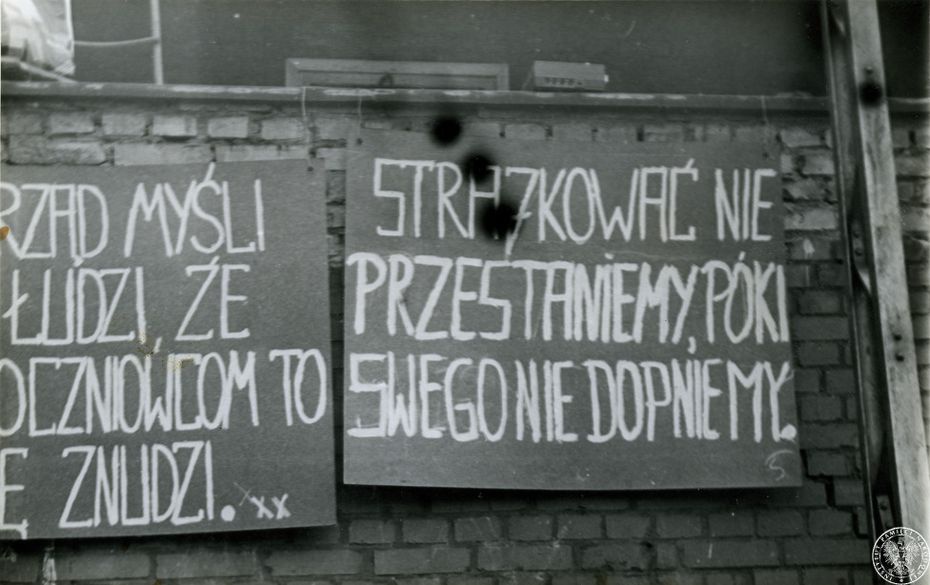 RZĄD MYŚLI
ŁUDZI, ŻE
OCZNIOWCOM TO
Ę ZNUDZI. xx
STRAJKOWAĆ NIE
PRZESTANIEMY, PÓKI
SWEGO NIE DOPNIEMY.
5